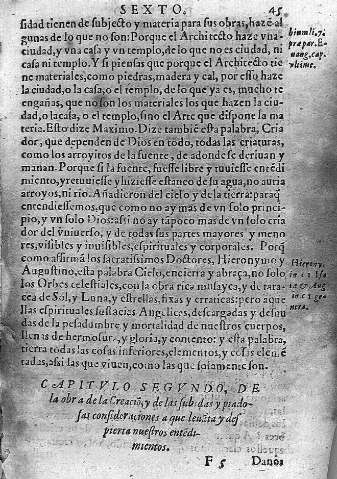 SEXTO. 45
sidad tienen de subjecto y materia para sus obras, hazẽ al
gunas de lo que no son: Porque el Architecto haze vna
ciudad, y vna casa y vn templo, de lo que no es ciudad, ni
casa ni templo. Y si piensas que porque el Architecto tie
ne materiales, como piedras, madera y cal, por esto haze
la ciudad, o la casa, o el templo, de lo que ya es, mucho te
engañas, que no son los materiales los que hazen la ciu-
dad, o la casa, o el templo, sino el Arte que dispone la ma
teria. Esto dize Maximo. Dize tambiẽ esta palabra, Cria
dor, que dependen de Dios en todo, todas las criaturas,
como los arroyitos de la fuente, de adonde se deriuan y
manan. Porque si la fuente, fuesse libre y tuuiesse entẽdi
miento, y retuuiesse y hiziesse estanco de su agua, no auria
arroyos, ni rio. Añadieron del cielo y de la tierra: paraq̃
entendiessemos, que como no ay mas de vn solo princi-
pio, y vn solo Dios: assi no ay tãpoco mas de vn solo cria
dor del vniuerso, y de todas sus partes mayores y meno
res, visibles y inuisibles, espirituales y corporales. Porq̃
como affirmã los sacratissimos Doctores, Hieronymo y
Augustino, esta palabra Cielo, encierra y abraça, no solo
los Orbes celestiales, con la obra rica musayca, y de tara-
cea de Sol, y Luna, y estrellas, fixas y erraticas: pero aque
llas espirituales sustãcias Angelicas, descargadas y desnu
das de la pesadumbre y mortalidad de nuestros cuerpos,
llenas de hermosura, y gloria, y contento: y esta palabra,
tierra todas las cosas inferiores, elementos, y cosas elemẽ
tadas, assi las que viuen, como las que solamente son.
Hierony.
CAPITVLO SEGVNDO, DE
la obra de la Creaciõ, y de las subidas y piado-
sas consideraciones a que leuãta y des
pierta nuestros entẽdi-
mientos.
F 5 Danos